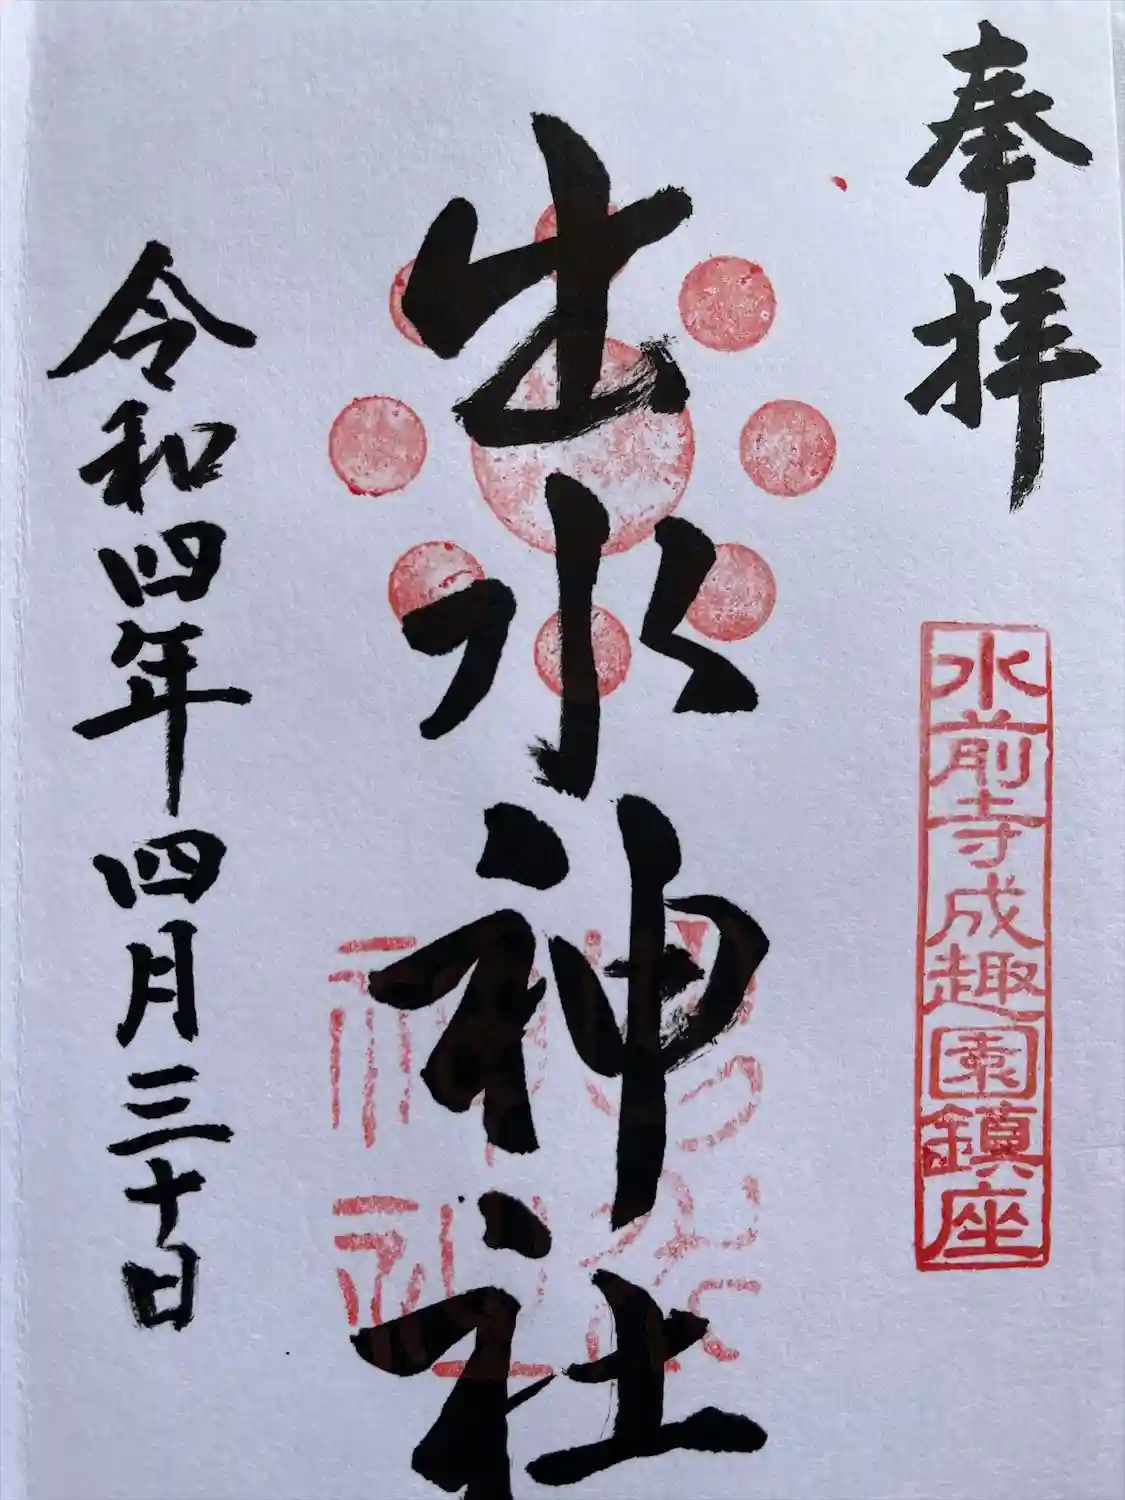 奉拝
水前寺成趣園鎮座
出水神社
令和四年四月三十日